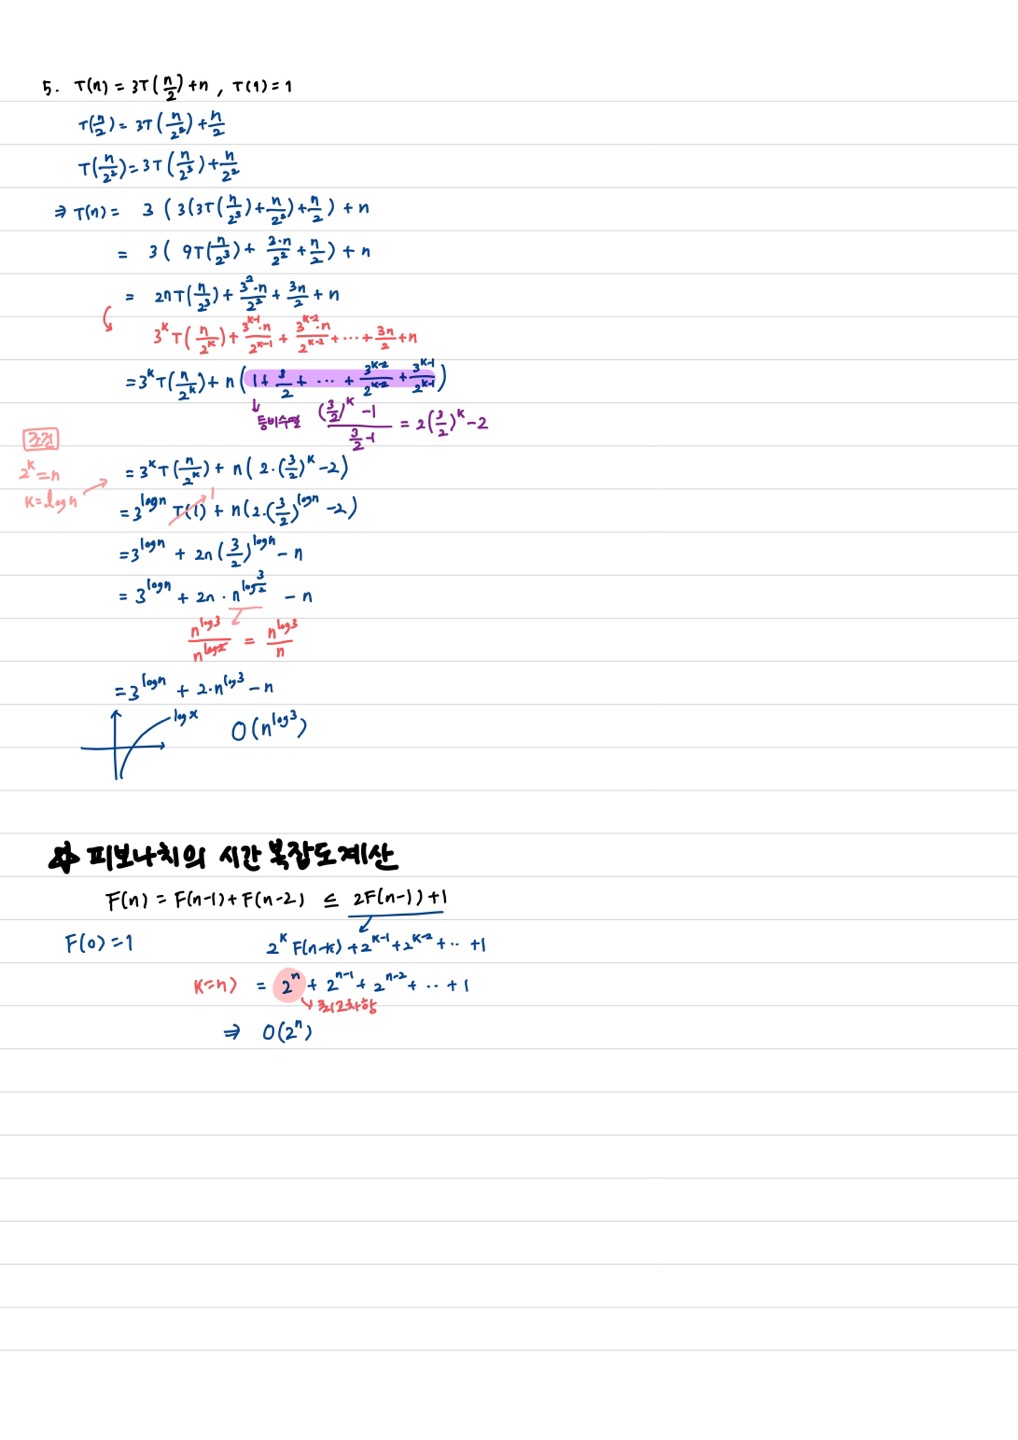 5. T(n) = 3T(n/2)+n , T(1)=1
T(n/2) = 3T(n/2²)+n/2
T(n/2²)=3T(n/2³)+n/2²
⇒ T(n) = 3(3(3T(n/2³)+n/2²)+n/2)+n
= 3(9T(n/2³)+3·n/2²+n/2)+n
= 27T(n/2³)+3²·n/2²+3n/2+n
3^K T(n/2^K)+3^(K-1)·n/2^(K-1)+3^(K-2)·n/2^(K-2)+···+3n/2+n
=3^K T(n/2^K)+n(1+3/2+···+3^(K-2)/2^(K-2)+3^(K-1)/2^(K-1))
↓ 등비수열 ((3/2)^K -1)/(3/2 -1) = 2(3/2)^K -2
조건
2^K=n
K=log n
=3^K T(n/2^K)+n(2·(3/2)^K -2)
=3^(log n) T(1) 1 + n(2·(3/2)^(log n) -2)
=3^(log n) + 2n(3/2)^(log n) - n
= 3^(log n) + 2n · n^(log 3/2) - n
n^(log 3)/n^(log 2) = n^(log 3)/n
=3^(log n) + 2·n^(log 3) - n
log x O(n^(log 3))
☆ 피보나치의 시간 복잡도 계산
F(n) = F(n-1)+F(n-2) ≤ 2F(n-1)+1
F(0)=1 2^K F(n-K)+2^(K-1)+2^(K-2)+··+1
K=n) = 2^n+2^(n-1)+2^(n-2)+··+1
최고차항
⇒ O(2^n)